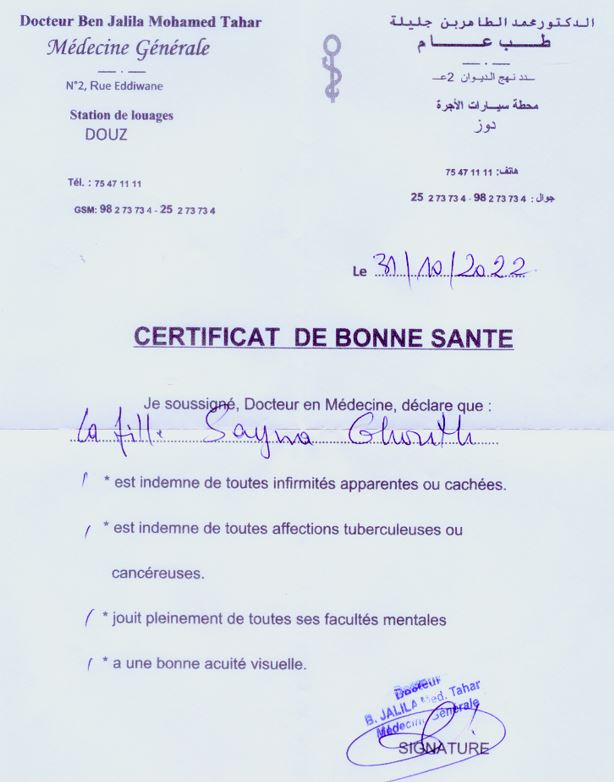 Docteur Ben Jalila Mohamed Tahar
Médecine Générale
N°2, Rue Eddiwane
Station de louages
DOUZ
Tél. : 75 47 11 11
GSM: 98 2 73 73 4 - 25 2 73 73 4
الدكتور محمد الطاهر بن جليلة
طب عام
عدد 2 نهج الديوان
محطة سيارات الأجرة
دوز
هاتف: 11 11 47 75
جوال : 98 2 73 73 4 - 25 2 73 73 4
Le 31/10/2022
CERTIFICAT DE BONNE SANTE
Je soussigné, Docteur en Médecine, déclare que :
La fille Sayna
* est indemne de toutes infirmités apparentes ou cachées.
* est indemne de toutes affections tuberculeuses ou
cancéreuses.
* jouit pleinement de toutes ses facultés mentales
* a une bonne acuité visuelle.
Docteur
B. JALILA Med. Tahar
Médecine Générale
SIGNATURE